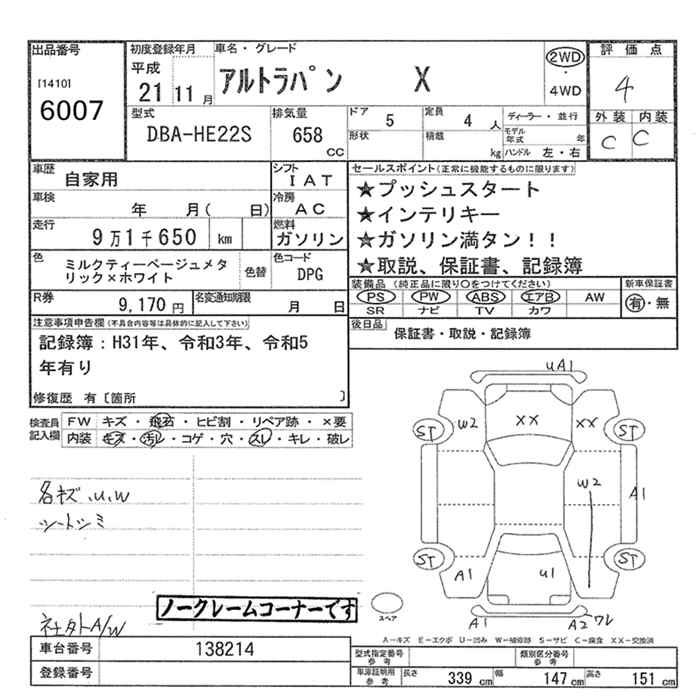 出品番号
[1410]
6007
初度登録年月
平成
21 11 月
車名・グレード
アルトラパン X
2WD
・
4WD
評価点
4
外装 内装
C C
型式
DBA-HE22S
排気量
658
CC
ドア
5
定員
4 人
形状
積載
kg
ディーラー・並行
モデル
年式 年
ハンドル 左・右
車歴
自家用
シフト
IAT
車検
年 月( 日)
冷房
AC
走行
9万1千650 km
燃料
ガソリン
色
ミルクティーベージュメタ
リック×ホワイト
色替
色コード
DPG
R券
9,170 円
名変通知期限
月 日
セールスポイント(正常に機能するものに限ります)
★プッシュスタート
★インテリキー
★ガソリン満タン!!
★取説、保証書、記録簿
装備品 (純正品に限り〇をつけてください)
PS PW ABS エアB AW
SR ナビ TV カワ
新車保証書
有・無
後日品
保証書・取説・記録簿
注意事項申告欄(不具合内容等は具体的に記入して下さい)
記録簿:H31年、令和3年、令和5
年有り
修復歴 有〔箇所 〕
検査員
記入欄
FW キズ・飛石・ヒビ割・リペア跡・×要
内装 キズ・汚レ・コゲ・穴・スレ・キレ・破レ
各キズ.U.W
シートシミ
社外A/W
ノークレームコーナーです
UA1
W2 XX XX
ST ST
W2
A1
ST ST
A1 U1
A1 A2 ワレ
スペア
A-キズ E-エクボ U-凹み W-補修跡 S-サビ C-腐食 XX-交換済
車台番号
138214
登録番号
型式指定番号
参考
類別区分番号
参考
車庫証明用
参考
長さ 339 cm 幅 147 cm 高さ 151 cm